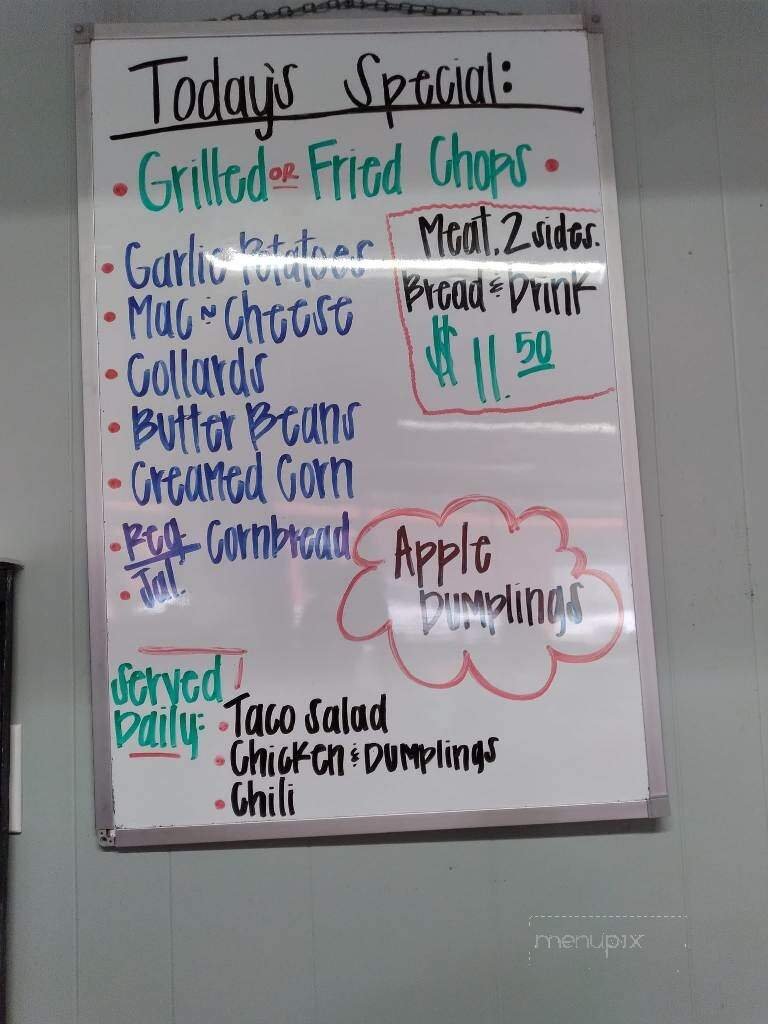 Today's Special:
• Grilled OR Fried Chops •
• Garlic Potatoes
• Mac ~ Cheese
• Collards
• Butter Beans
• Creamed Corn
• Reg. Cornbread
• Jal.
Meat, 2 sides.
Bread & Drink
$ 11.50
Apple
Dumplings
Served
Daily:
• Taco Salad
• Chicken & Dumplings
• Chili
menupix